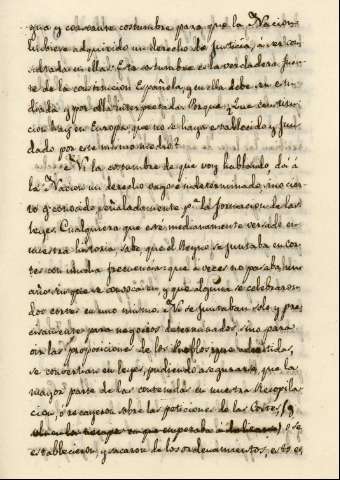 gua y constante costumbre para que la Nacion
hubiese adquirido un derecho de Justicia, á ser con
sultada en ellas. Esta costumbre es la verdadera fuen
te de la constitucion Española, y en ella debe ser estu
diada y por ella interpretada. Porque ¿Que constitu
cion hay en Europa que no se haya establecido y fun
dado por este mismo medio?
Ni la costumbre de que voy hablando, dá á
la Nacion un derecho vago é indeterminado, sino cier
to y conocido, señaladamente pª la formacion de las
leyes. Cualquiera que esté medianamente versado en
nuestra historia, sabe que el Reyno se juntaba en cor
tes con mucha frecuencia: que á veces no pasaba un
año sin que se convocasen y que alguna se celebraron
dos cortes en uno mismo. No se juntaban solo y pre
cisamente para negocios determinados, sino para
oir las proposiciones de los Pueblos que admitidas,
se convertian en leyes, pudiendo asegurarse, que la
mayor parte de las contenidas en nuestra Recopila
cion, o recayeron sobre las peticiones de las Cortes
en que empezaba á o se
establecieron y sacaron de los ordenamientos, esto es